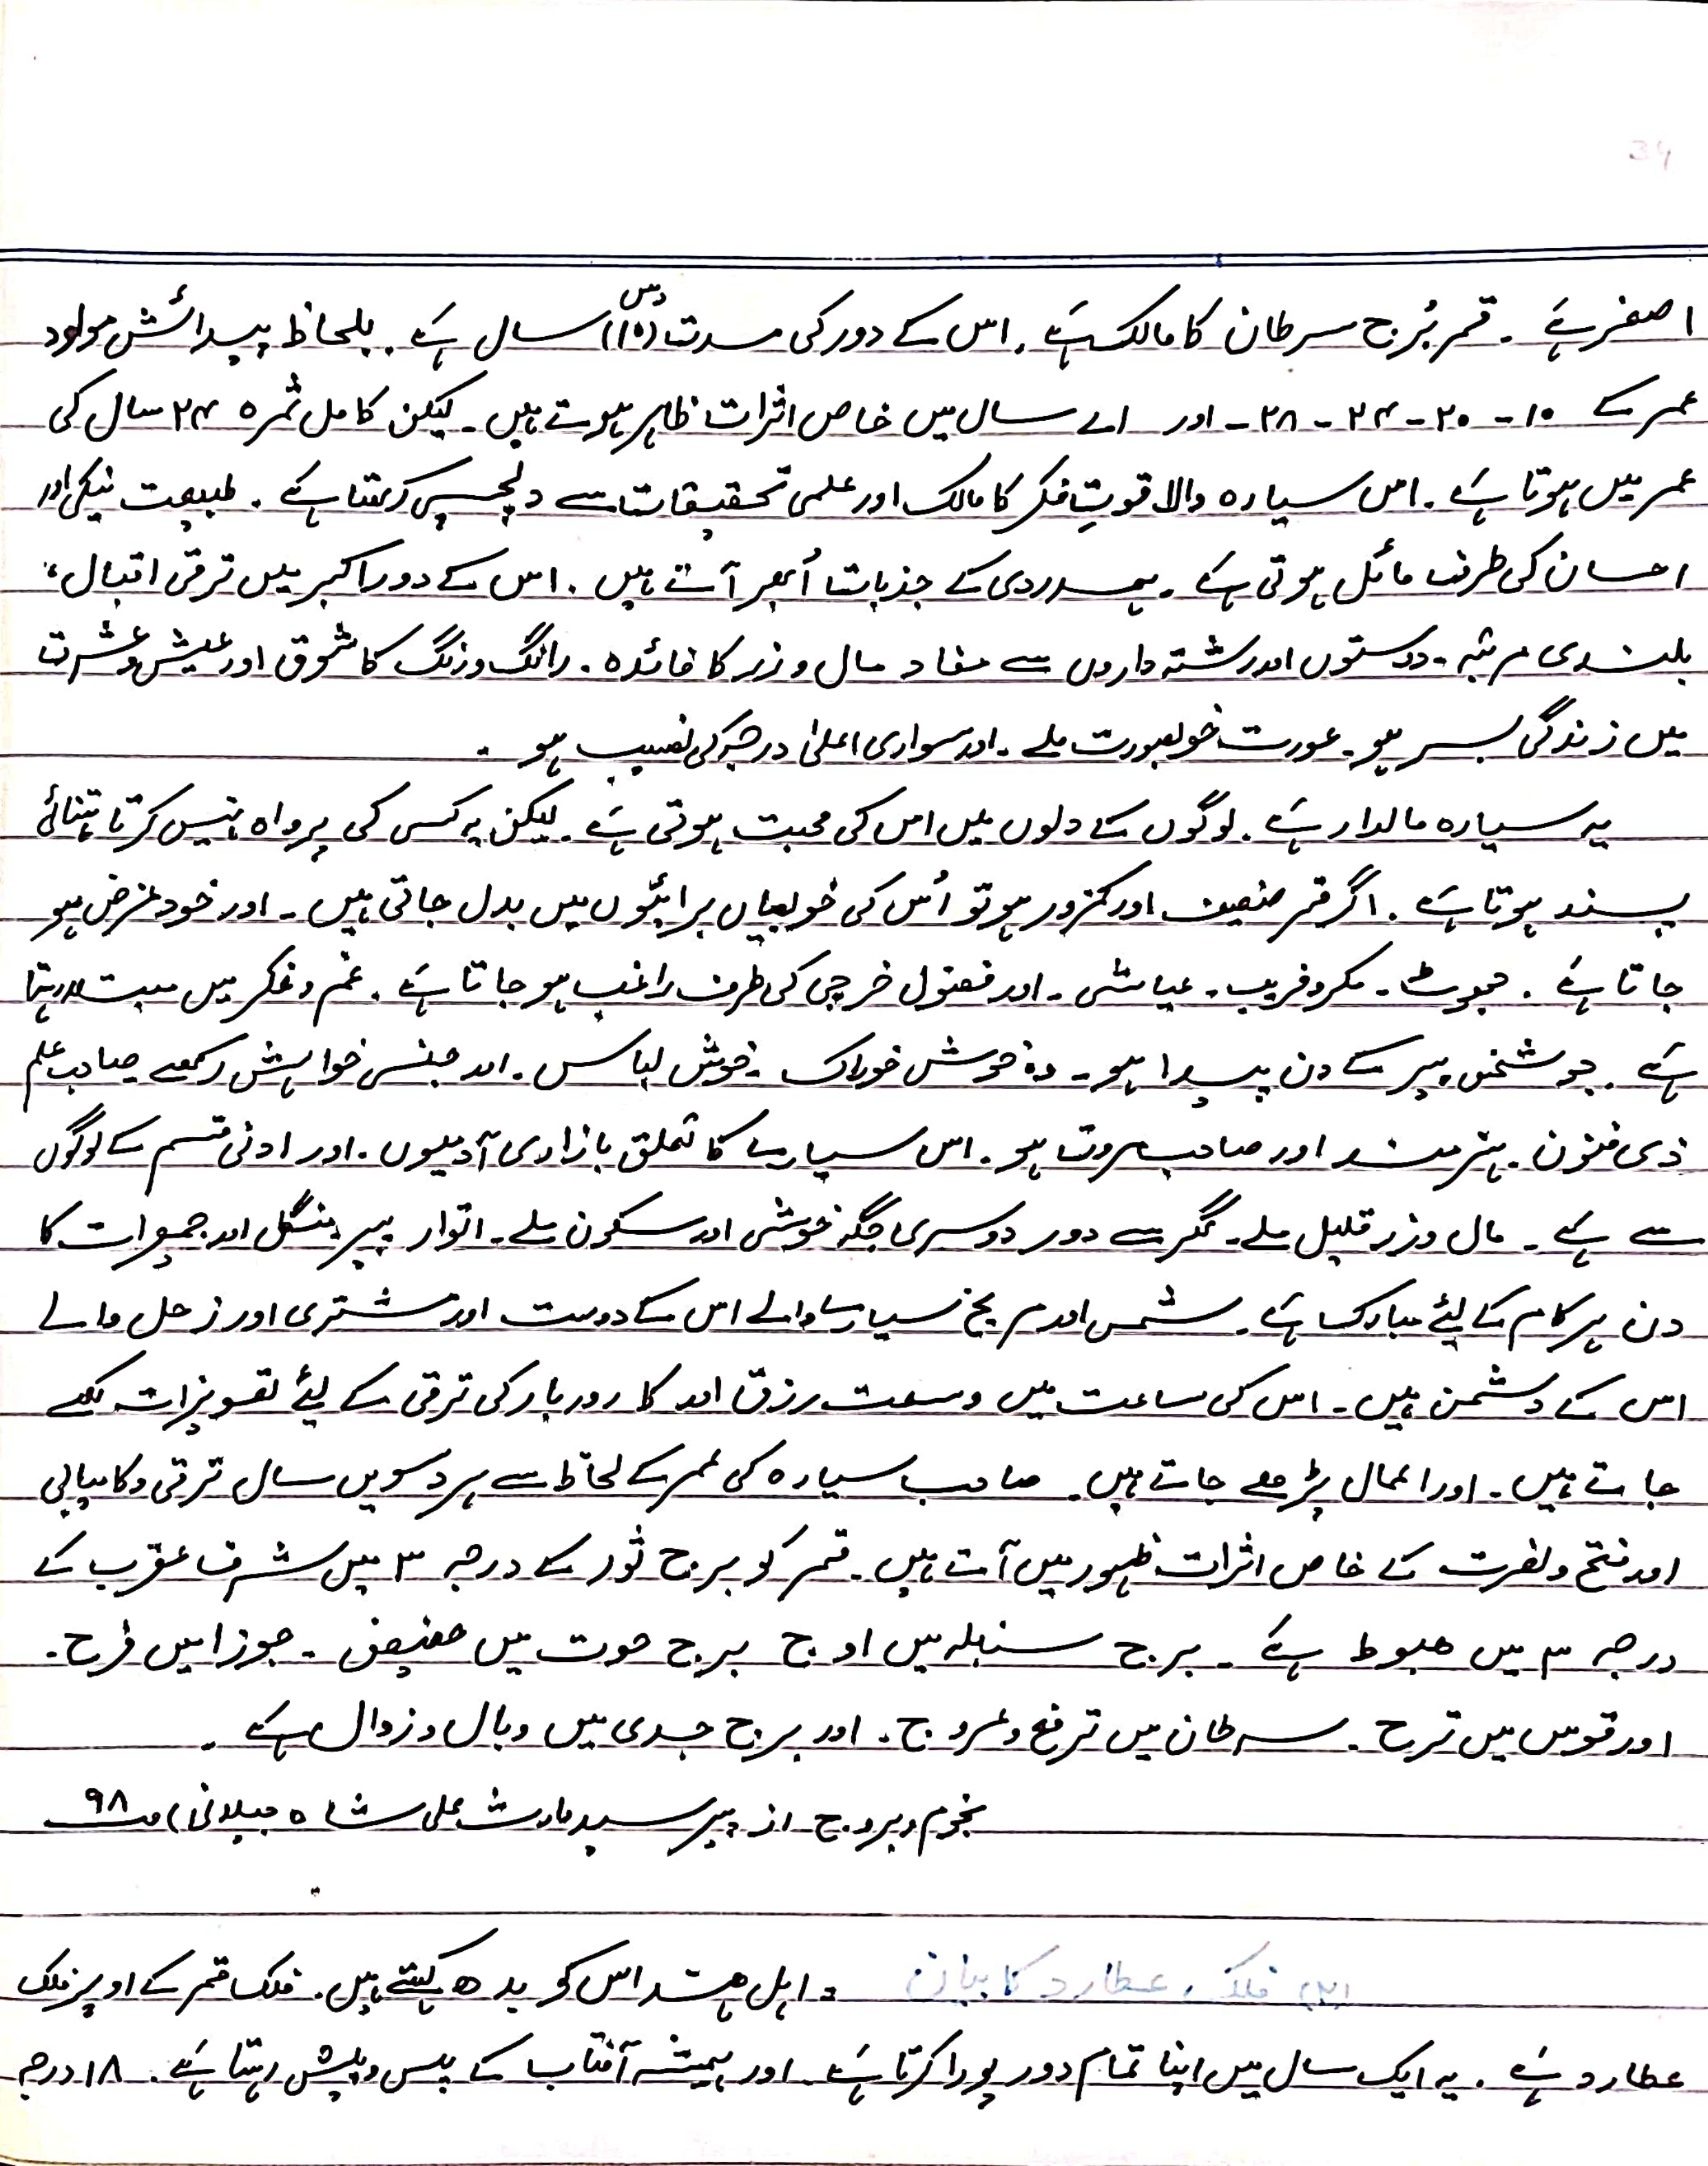 34
اصغر ہے ۔ قمر بُرج سرطان کا مالک ہے ۔ اس کے دور کی مدت (۱۰) دس سال ہے ۔ بلحاظ پیدائش مولود
عمر کے ۱۰ ۔ ۲۰ ۔ ۲۴ ۔ ۲۸ ۔ اور ۷۱ سال میں خاص اثرات ظاہر ہوتے ہیں ۔ لیکن کامل ثمرہ ۲۴ سال کی
عمر میں ہوتا ہے ۔ اس سیارہ والا قوتِ فکر کا مالک اور علمی تحقیقات سے دلچسپی رکھتا ہے ۔ طبیعت نیکی اور
احسان کی طرف مائل ہوتی ہے ۔ ہمدردی کے جذبات اُبھر آتے ہیں ۔ اس کے دور اکبر میں ترقی اقبال ،
بلندی مرتبہ ۔ دوستوں اور رشتہ داروں سے مفاد مال و زر کا فائدہ ۔ راگ و رنگ کا شوق اور عیش و عشرت
میں زندگی بسر ہو ۔ عورت خوبصورت ملے ۔ اور سواری اعلیٰ درجہ کی نصیب ہو ۔
یہ سیارہ مالدار ہے ۔ لوگوں کے دلوں میں اس کی محبت ہوتی ہے ۔ لیکن یہ کسی کی پرواہ نہیں کرتا تنہائی
پسند ہوتا ہے ۔ اگر قمر ضعیف اور کمزور ہو تو اُس کی خوبیاں برائیوں میں بدل جاتی ہیں ۔ اور خود غرض ہو
جاتا ہے ۔ جھوٹ ۔ مکر و فریب ۔ عیاشی ۔ اور فضول خرچی کی طرف راغب ہو جاتا ہے ۔ غم و فکر میں مبتلا رہتا
ہے ۔ جو شخص پیر کے دن پیدا ہو ۔ وہ خوش خوراک ۔ خوش لباس ۔ اور جنسی خواہش رکھے صاحب علم
ذی فنون ۔ ہنرمند اور صاحب مروت ہو ۔ اس سیارے کا تعلق بازاری آدمیوں ۔ اور ادنی قسم کے لوگوں
سے ہے ۔ مال و زر قلیل ملے ۔ گھر سے دور دوسری جگہ خوشی اور سکون ملے ۔ اتوار پیر منگل اور جمعرات کا
دن ہر کام کے لئے مبارک ہے ۔ شمس اور مریخ سیارے والے اس کے دوست اور مشتری اور زحل والے
اس کے دشمن ہیں ۔ اس کی ساعت میں وسعت رزق اور کاروبار کی ترقی کے لئے تعویزات لکھے
جاتے ہیں ۔ اور اعمال پڑھے جاتے ہیں ۔ صاحب سیارہ کی عمر کے لحاظ سے ہر دسویں سال ترقی و کامیابی
اور فتح و نصرت کے خاص اثرات ظہور میں آتے ہیں ۔ قمر کو برج ثور کے درجہ ۳ میں شرف عقرب کے
درجہ ۳ میں ھبوط ہے ۔ برج سنبلہ میں اوج برج حوت میں حضیض ۔ جوزا میں فرح ۔
اور قوس میں ترح ۔ سرطان میں ترفع و عروج ۔ اور برج جدی میں وبال و زوال ہے ۔
نجوم و بروج از پیر سید وارث علی شاہ جیلانی) صـ ۹۸
(۲) فلک عطارد کا بیان : اہل ھند اس کو بدھ کہتے ہیں ۔ فلک قمر کے اوپر فلک
عطارد ہے ۔ یہ ایک سال میں اپنا تمام دور پورا کرتا ہے ۔ اور ہمیشہ آفتاب کے پس و پیش رہتا ہے ۔ ۱۸ درجہ